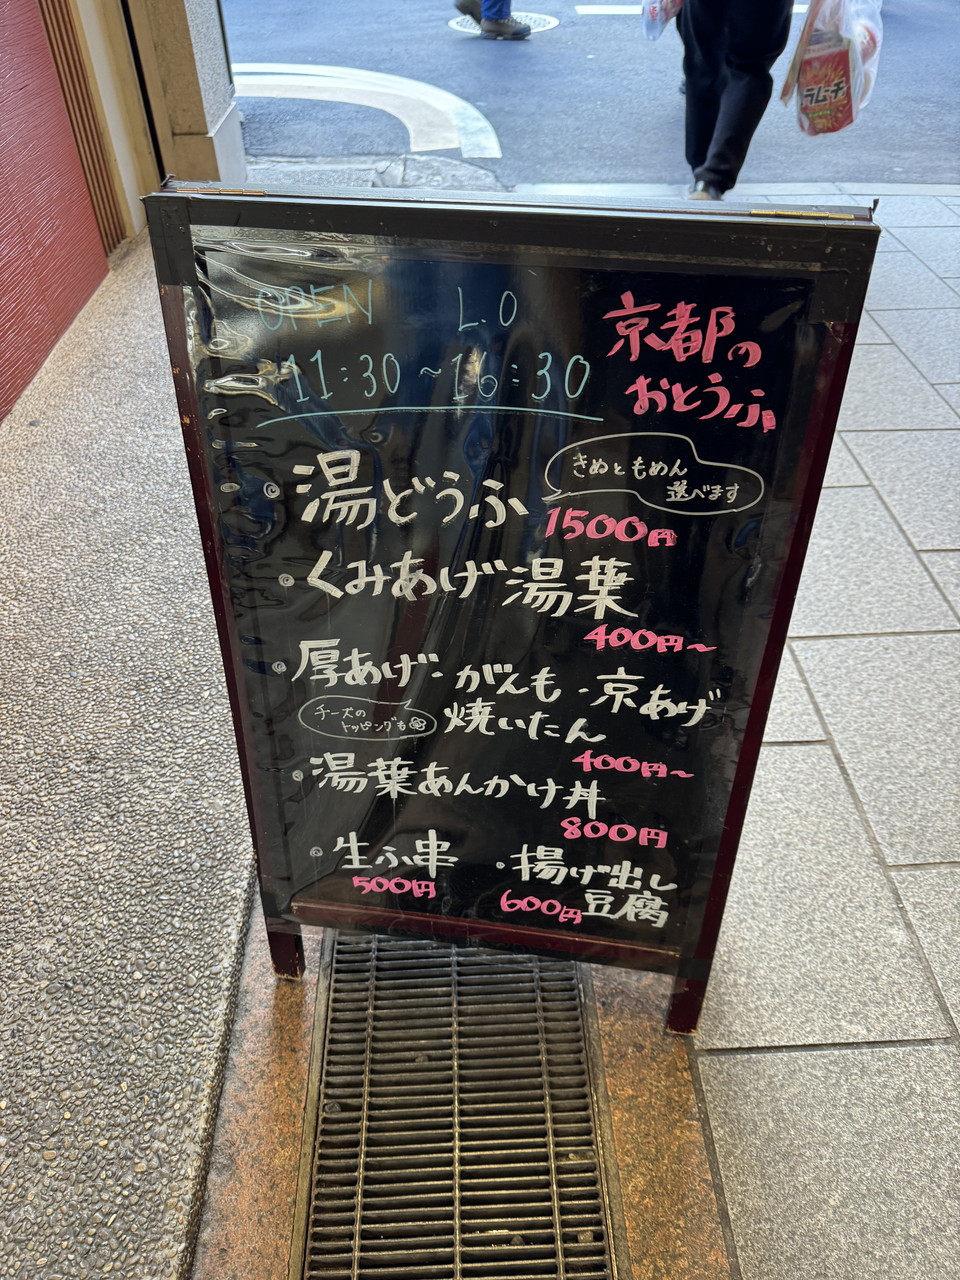 ラムーチョ
OPEN L.O
11:30~16:30
京都の
おとうふ
湯どうふ
きぬともめん
選べます
1500円
くみあげ湯葉
400円~
厚あげ・がんも・京あげ
焼いたん
チーズの
トッピングも
400円~
湯葉あんかけ丼
800円
生ふ串
500円
・揚げ出し
豆腐
600円